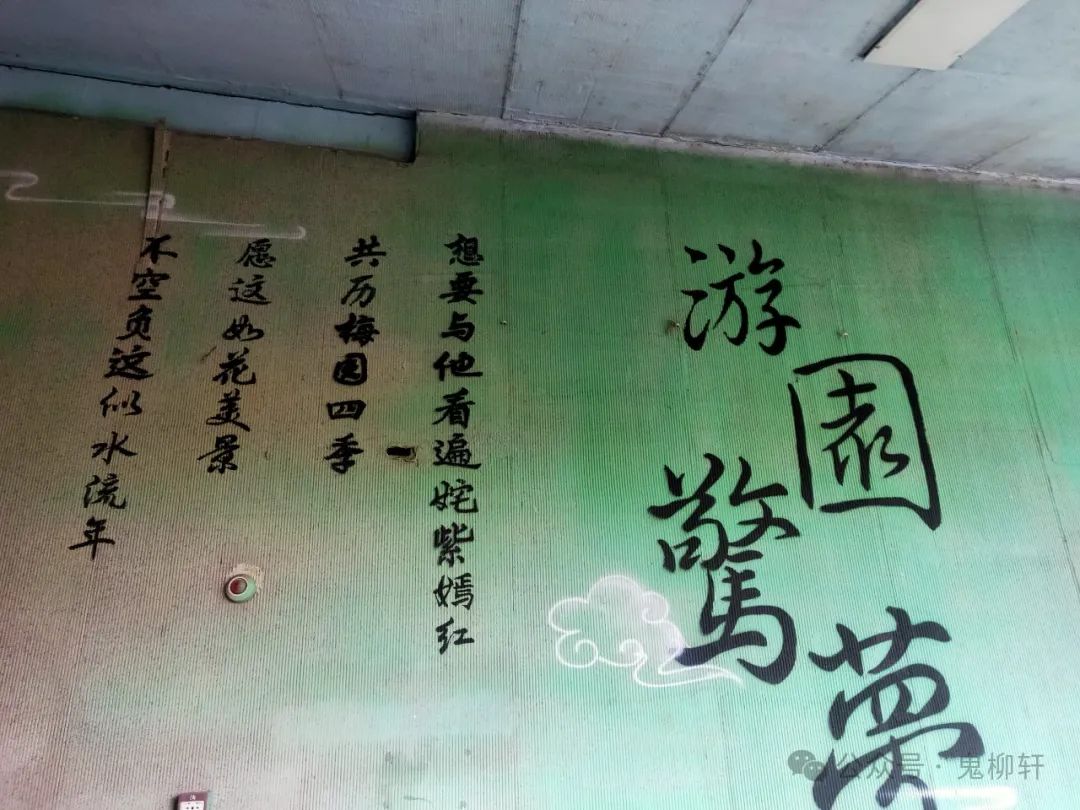 游園驚夢
想要与他看遍姹紫嫣红
共历梅园四季
愿这如花美景
不空负这似水流年
公众号·鬼柳轩